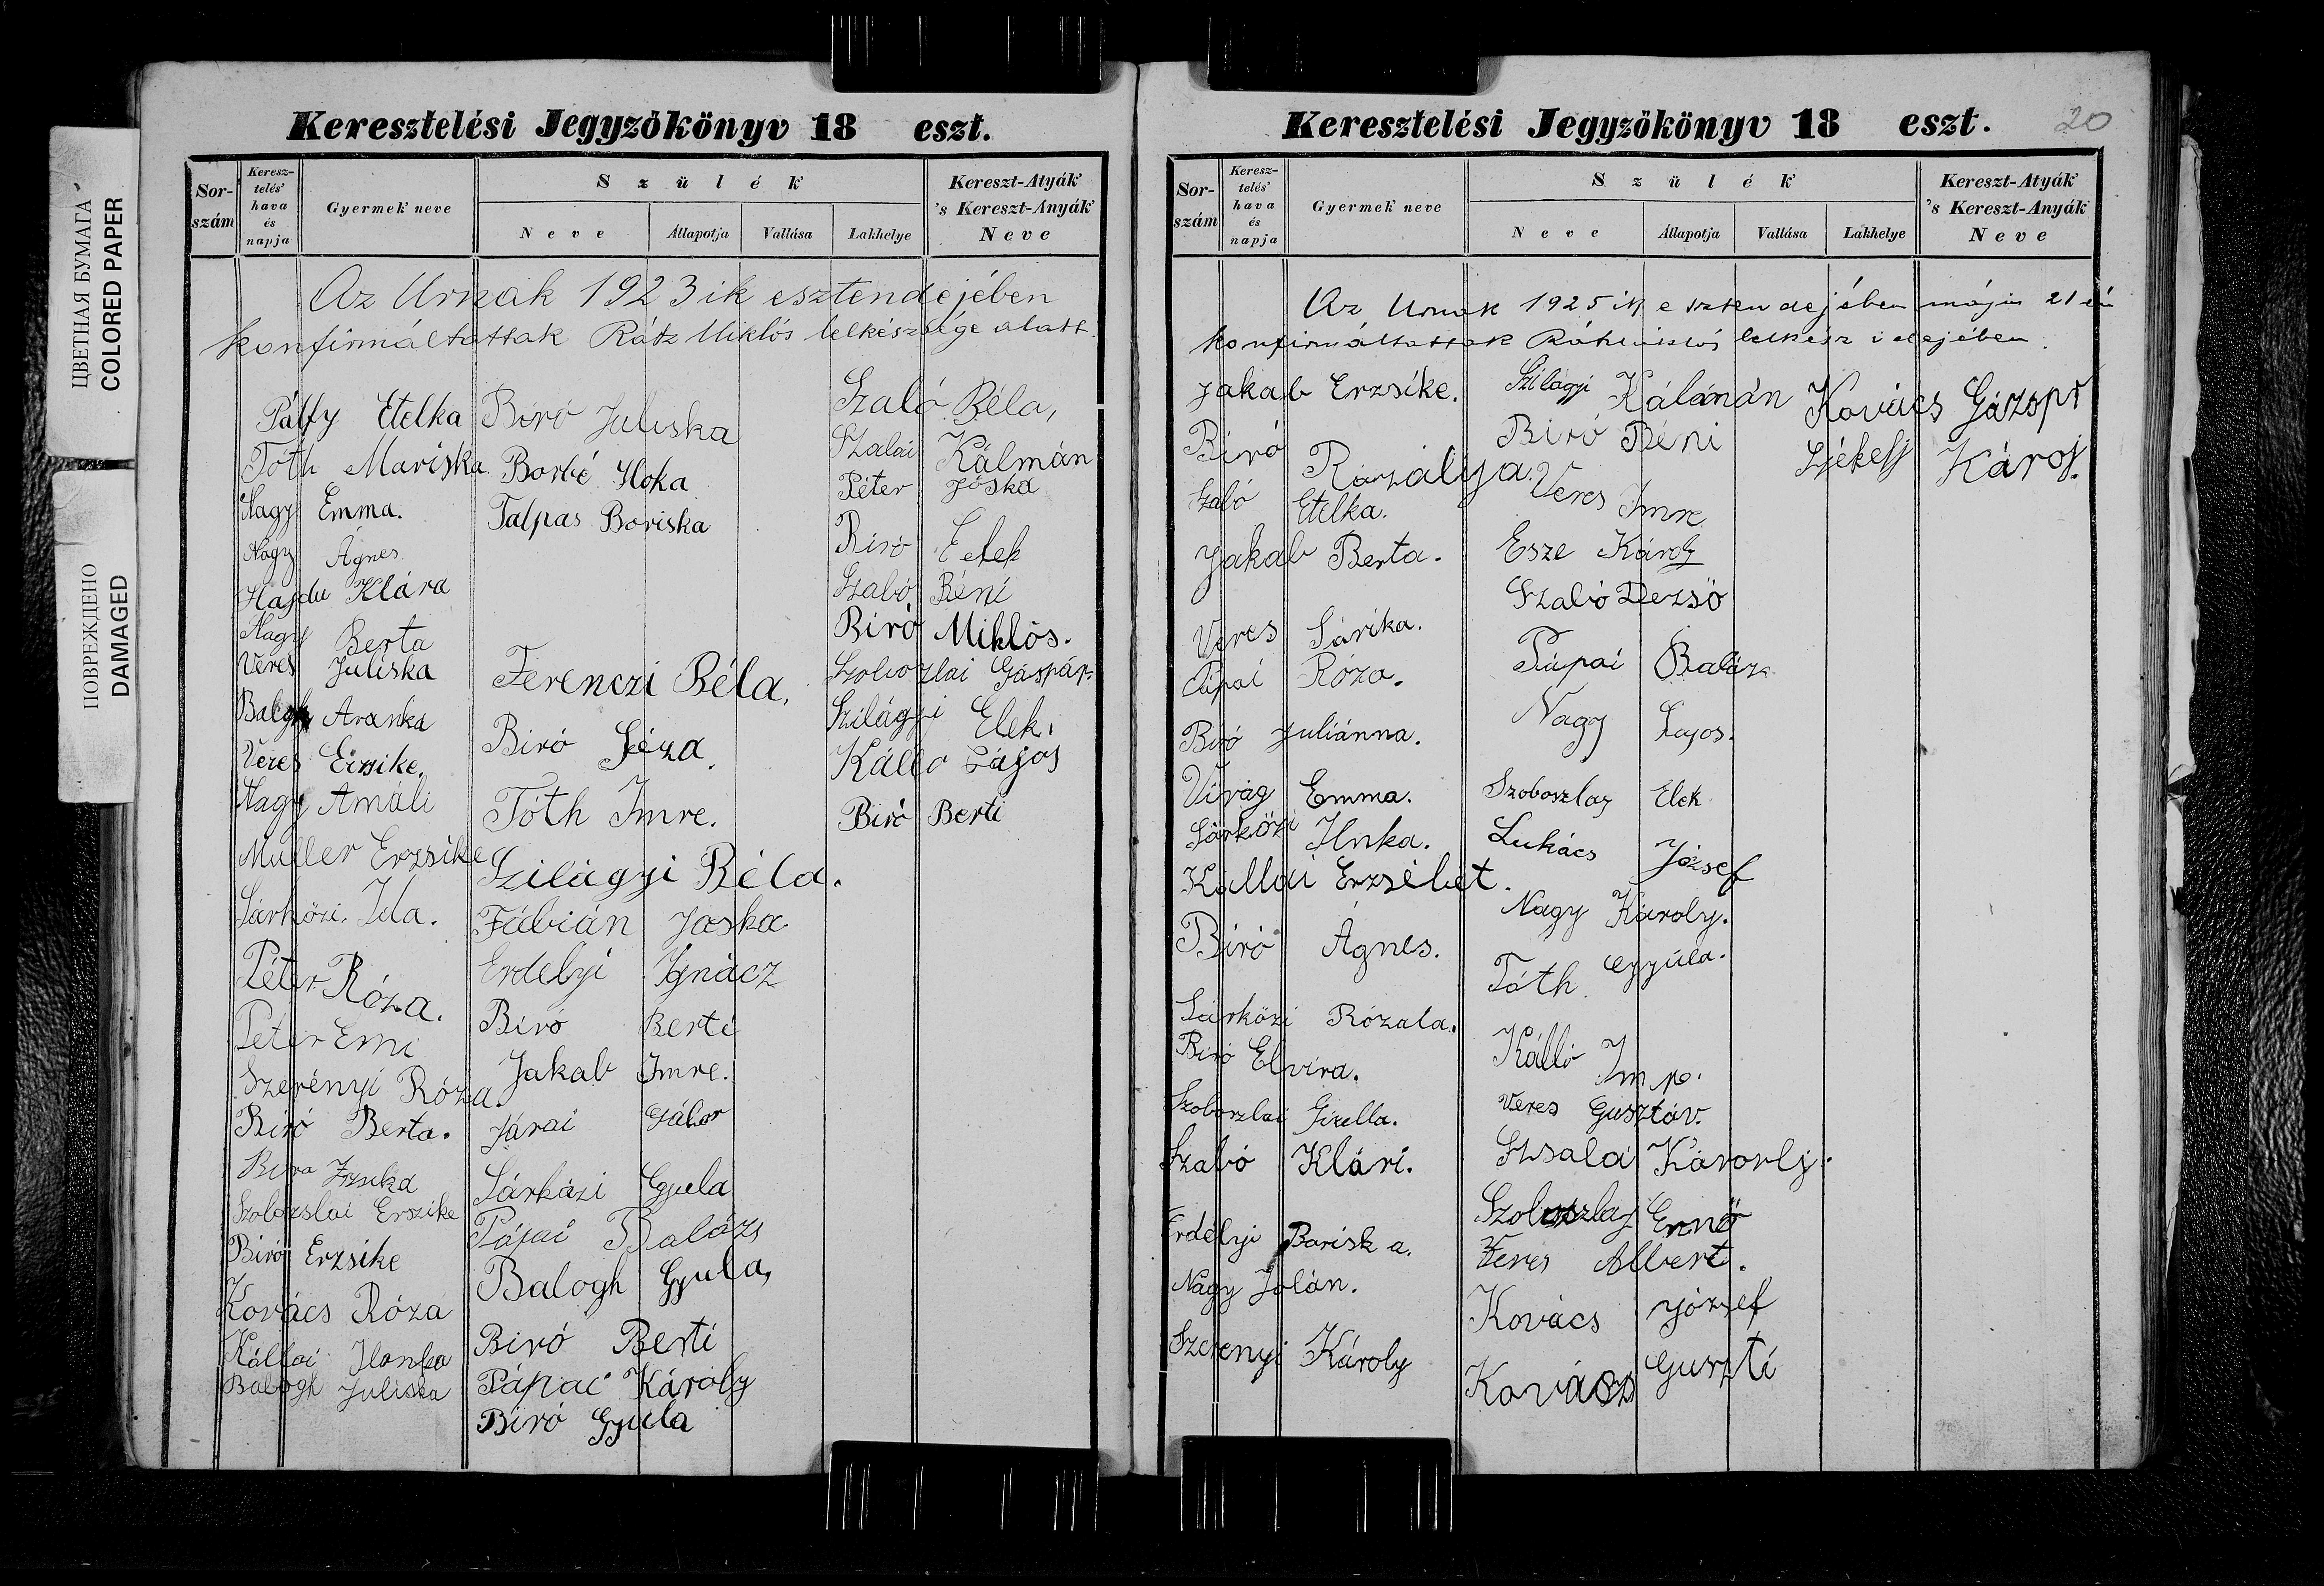 ЦВЕТНАЯ БУМАГА
COLORED PAPER
ПОВРЕЖДЕНО
DAMAGED
Keresztelési Jegyzökönyv 18 eszt.
Sor-szám
Keresz-telés' hava és napja
Gyermek neve
Szülék
Neve
Állapotja
Vallása
Lakhelye
Kereszt-Atyák 's Kereszt-Anyák Neve
Az Urnak 1923ik esztendejében
konfirmáltattak Rátz Miklós lelkészsége alatt.
Pálfy Etelka
Tóth Mariska
Nagy Emma.
Nagy Ágnes.
Hajdu Klára
Nagy Berta
Veres Juliska
Balogh Aranka
Veres Erzsike.
Nagy Amáli
Muller Erzsike
Sárközi Ida.
Péter Róza.
Péter Emi
Szerényi Róza.
Biró Berta.
Biró
Szoboszlai Erszike
Biró Erzsike
Kovács Róza
Kállai Ilonka
Balogh Juliska
Biró Juliska
Borbé Iloka
Talpas Boriska
Ferenczi Béla.
Biró Géza.
Tóth Imre.
Szilágyi Béla.
Fábián Jóska
Erdélyi Ignácz
Biró Berti
Jakab Imre.
Járai Gábor
Sárközi Gyula
Pápai Balázs
Balogh Gyula,
Biró Berti
Pápai Károly
Biró Gyula
Szabó Béla,
Szalai Kálmán
Péter Jóska
Biró Elek
Szabó Béni
Biró Miklós.
Szoboszlai Gáspár
Szilágyi Elek.
Kálló Lajos
Biró Berti
Keresztelési Jegyzökönyv 18 eszt.
20
Sor-szám
Keresz-telés' hava és napja
Gyermek neve
Szülék
Neve
Állapotja
Vallása
Lakhelye
Kereszt-Atyák 's Kereszt-Anyák Neve
Az Urnak 1925ik esztendejében május 21 én
konfirmáltattak lelkész idejében.
Jakab Erzsike.
Biró Rózályа.
Szabó Etelka.
Jakab Berta.
Veres Sárika.
Pápai Róza.
Biró Juliánna.
Virág Emma.
Sárközi Ilnka.
Kállai Erzsébet.
Biró Ágnes.
Sárközi Rózala.
Biró Elvira.
Szoboszlai Gizella.
Szabó Klári.
Erdélyi Bariska.
Nagy Jolán.
Szerenyi Károly
Szilágyi Kálmán
Biró Béni
Veres Imre.
Esze Károly
Szabó Dezsö
Pápai Baláz
Nagy Lajos.
Szoboszlay Elek
Lukács József
Nagy Károly.
Tóth Gyúla.
Kálló Imre.
Veres Gusztáv.
Szsalai Károly.
Szoboszlay Ernő
Veres Albert.
Kovács József
Kovácsz Guszti
Kovács Gázspr
Székely Károj.